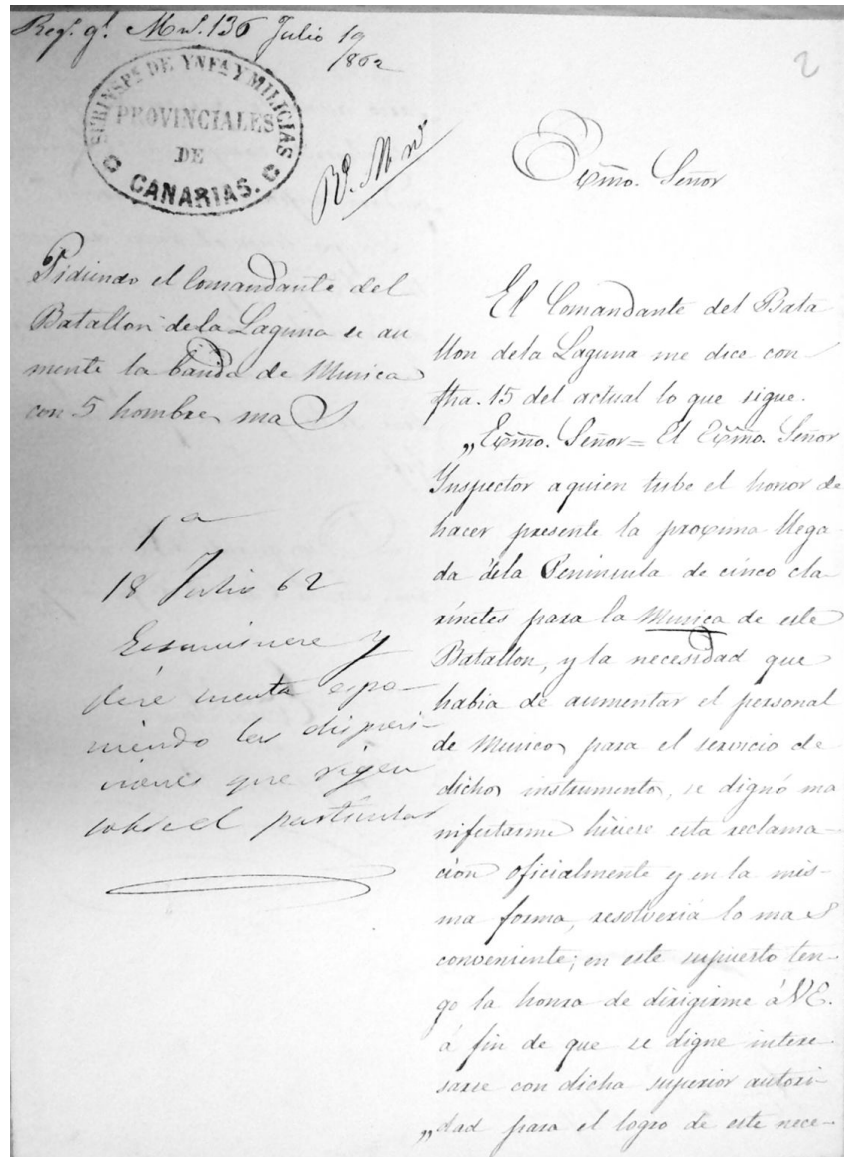 Reg. gl. Mil. 136 Julio 19
/862
SUBINSPn. DE YNFA. Y MILICIAS
PROVINCIALES
DE
CANARIAS.
2
Pidiendo el Comandante del
Batallon dela Laguna se au
mente la banda de Musica
con 5 hombres mas
1a
18 Julio 62
y
dése cuenta espo-
niendo las disposi-
ciones que rigen
sobre el particular
Exmo. Señor
El Comandante del Bata
llon dela Laguna me dice con
fha. 15 del actual lo que sigue.
„Exmo. Señor= El Exmo. Señor
Inspector aquien tube el honor de
hacer presente la proxima llega-
da dela Peninsula de cinco cla-
rinetes para la Musica de este
Batallon, y la necesidad que
habia de aumentar el personal
de Musicos para el servicio de
dichos instrumentos, se dignó ma
nifestarme hiciese esta reclama-
cion oficialmente y en la mis-
ma forma, resolveria lo mas
conveniente; en este supuesto ten-
go la honra de dirigirme á VE.
á fin de que se digne intere-
sarse con dicha superior autori-
„dad para el logro de este nece-